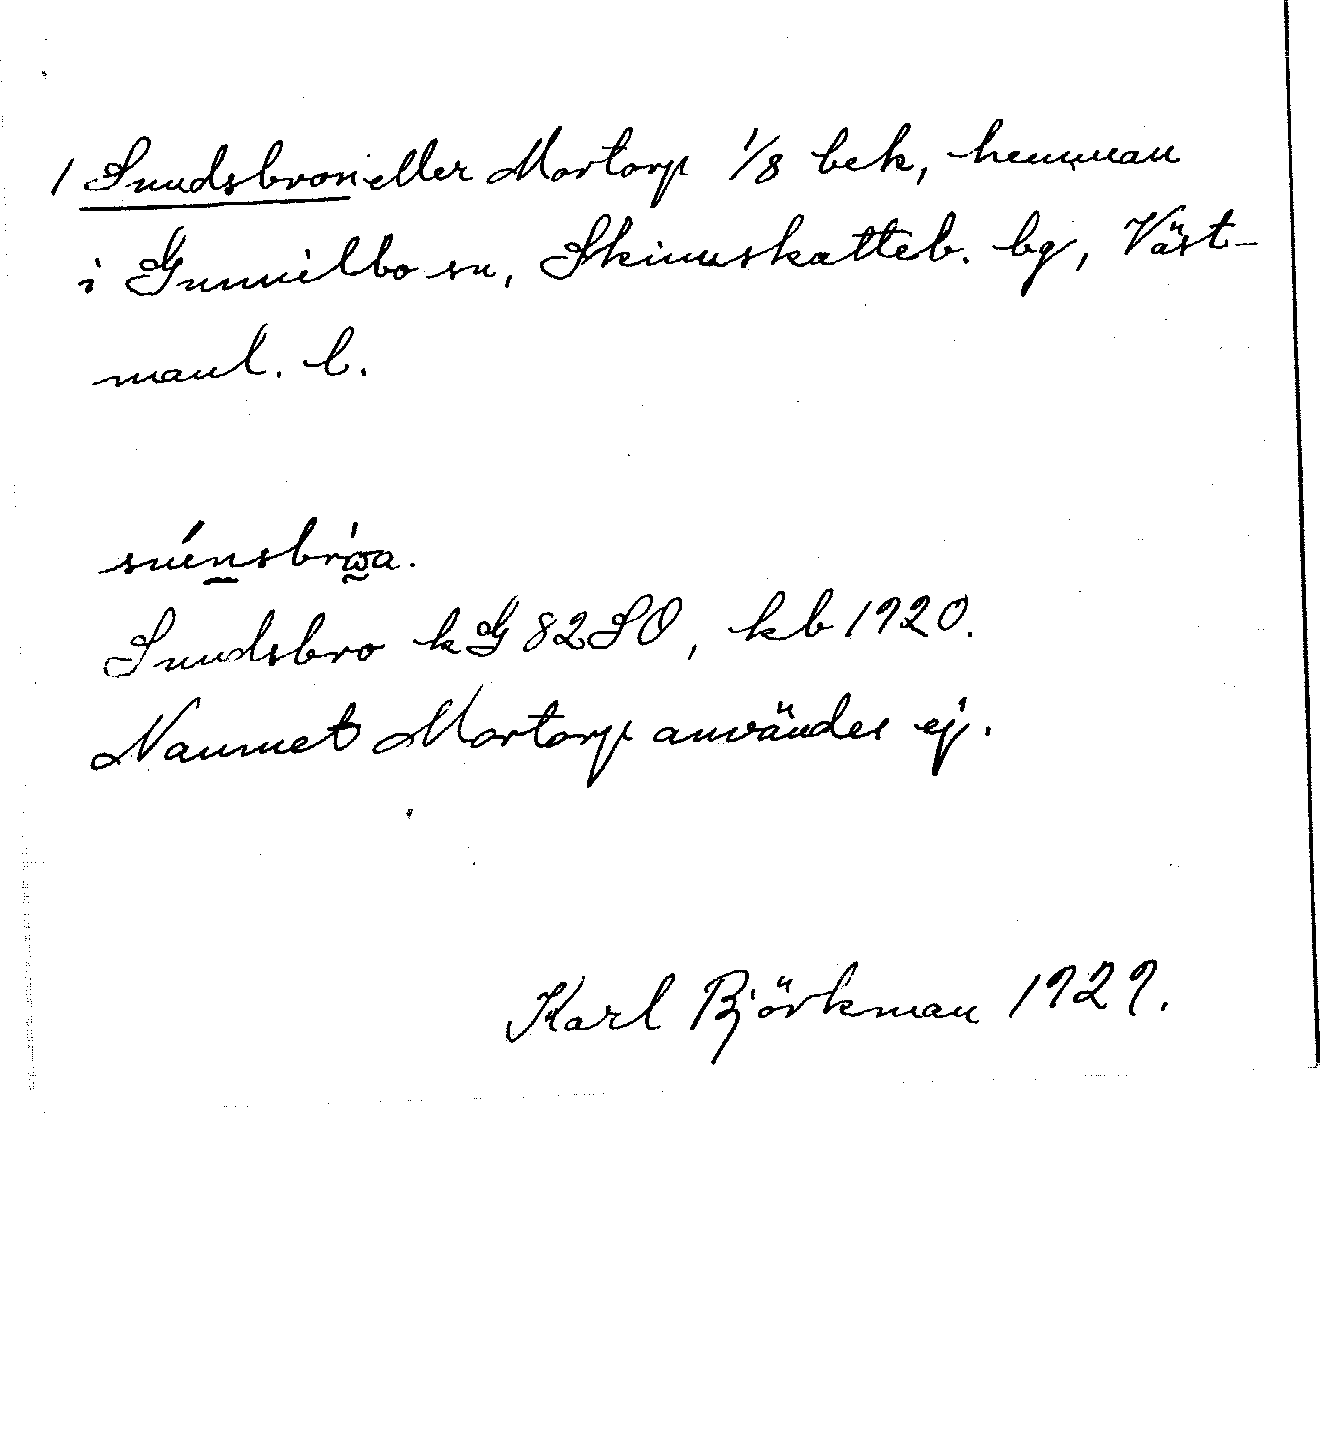 1 Sundsbron eller Mortorp 1/8 bek, hemman
i Gunnilbo sn, Skinnskatteb. bg, Väst-
manl. l.
Sundsbro kG 82SO, kb 1920.
Namnet Mortorp användes ej.
Karl Björkman 1929.